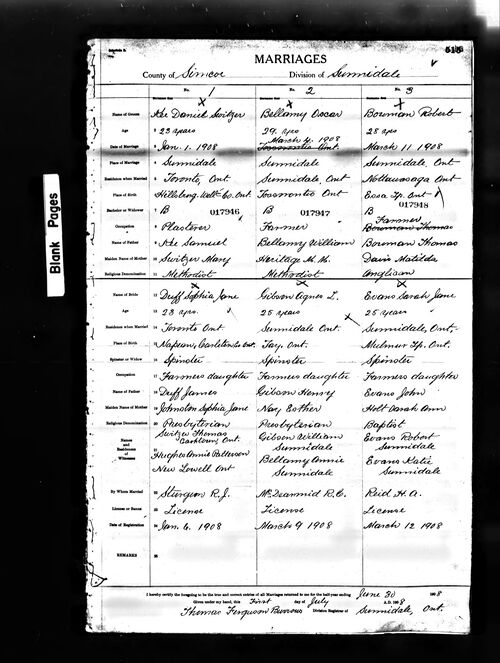 515
MARRIAGES
County of Simcoe Division of Sunnidale
No. 1 No. 2 No. 3
Name of Groom Kee Daniel Switzer Bellamy Oscar Bowman Robert
Age 23 years 29 yrs 28 yrs
March 4, 1908
Date of Marriage Jan. 1. 1908 Tossorontio Ont. March 11 1908
Place of Marriage Sunnidale Sunnidale Sunnidale Ont
Residence when Married Toronto, Ont Sunnidale, Ont Nottawasaga Ont
Place of Birth Hillsburg Well. Co. Ont Tossorontio Ont Essa Tp. Ont
Bachelor or Widower B 017946 B 017947 B 017948
Farmer
Occupation Plasterer Farmer Bowman Thomas
Name of Father Kee Samuel Bellamy William Bowman Thomas
Maiden Name of Mother Switzer Mary Heritage M. M. Davis Matilda
Religious Denomination Methodist Methodist Anglican
Name of Bride Duff Sophia Jane Gibson Agnes L. Evans Sarah Jane
Age 23 yrs. 25 years 25 years
Residence when Married Toronto Ont Sunnidale Ont. Sunnidale, Ont.
Place of Birth Napean, Carleton Co. Ont Tay, Ont. Mulmur Tp. Ont.
Spinster or Widow Spinster Spinster Spinster
Occupation Farmers daughter Farmers daughter Farmers daughter
Name of Father Duff James Gibson Henry Evans John
Maiden Name of Mother Johnston Sophia Jane Nary Esther Holt Sarah Ann
Religious Denomination Presbyterian Presbyterian Baptist
Names and Residences of Witnesses
Switzer Thomas Gibson William Evans Robert
Ont. Sunnidale Sunnidale
Hughes Annie Patterson Bellamy Annie Evans Katie
New Lowell Ont Sunnidale Sunnidale
By Whom Married Sturgeon R. J. McDearmid R. C. Reid H. A.
License or Banns License License License
Date of Registration Jan. 6. 1908 March 9 1908 March 12 1908
REMARKS
I hereby certify the foregoing to be the true and correct entries of all Marriages returned to me for the half-year ending June 30 1908
Given under my hand, this First day of July A.D. 1908
Thomas Ferguson Burrows Division Registrar of Sunnidale, Ont.
Blank Pages